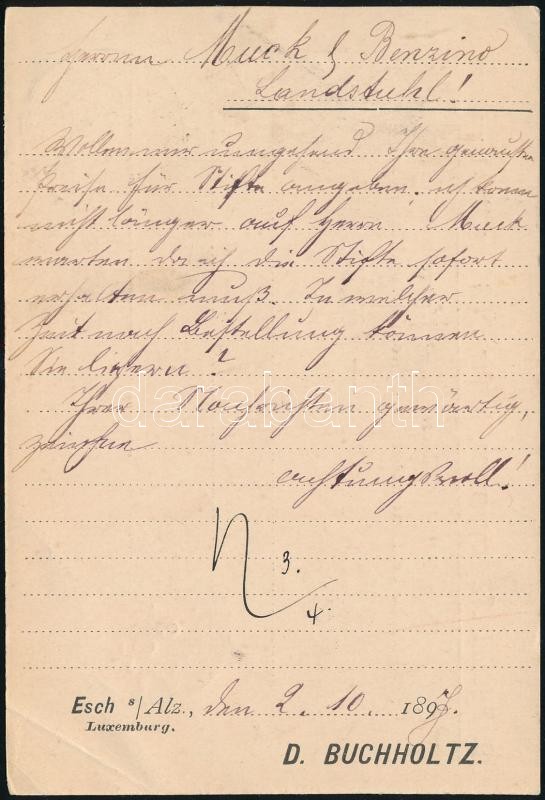 Herrn Muck & Benzino
Landstuhl!
Wollen mir umgehend Ihre genauesten
Preise für Stifte angeben. ich kann
nicht länger auf Herrn Muck
warten da ich die Stifte sofort
erhalten muß. In welcher
Zeit nach Bestellung können
Sie liefern?
Ihren Nachrichten gewärtig,
zeichne
achtungsvoll!
darabanth
3.
4.
Esch s/Alz., den 2. 10. 1897.
Luxemburg.
D. BUCHHOLTZ.